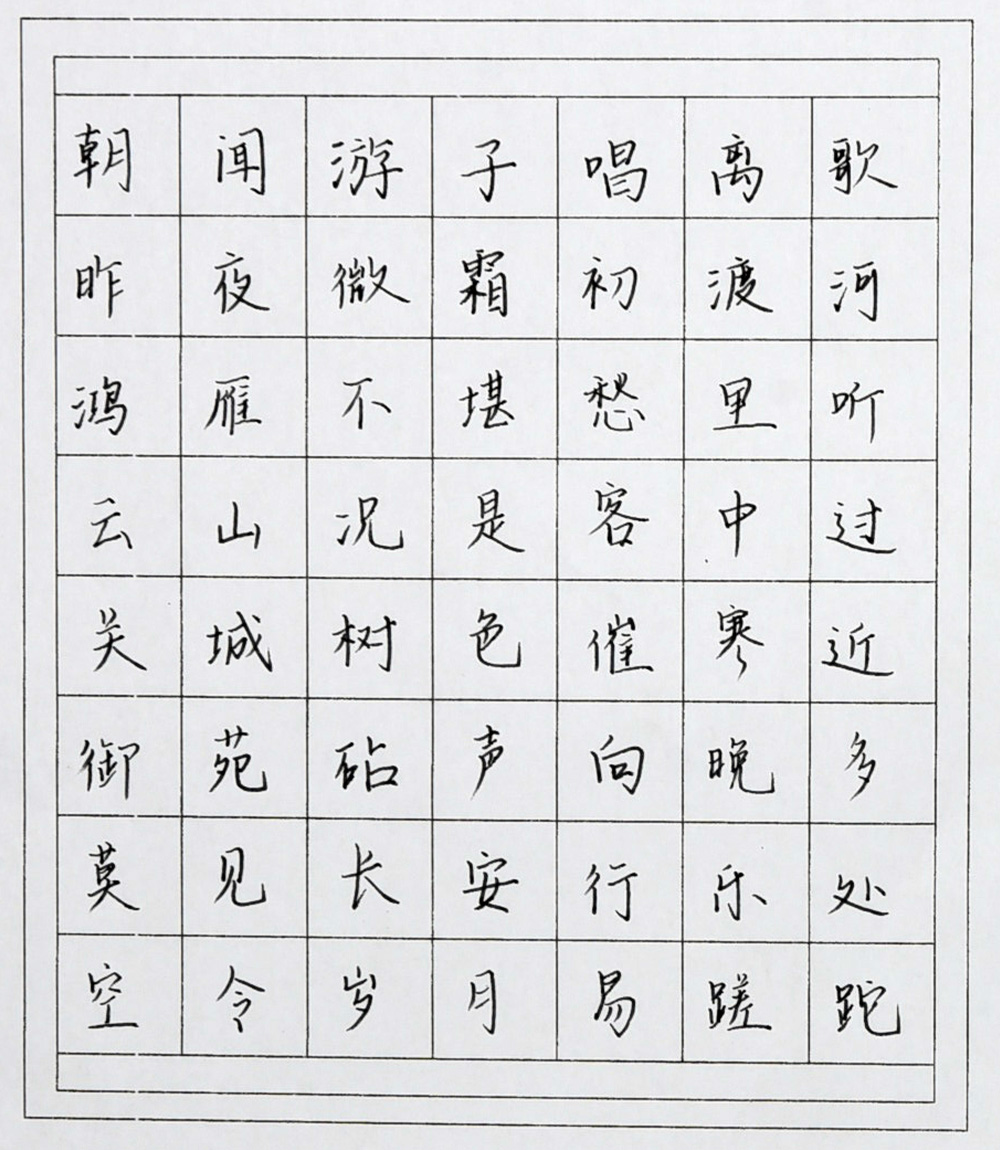 朝闻游子唱离歌
昨夜微霜初渡河
鸿雁不堪愁里听
云山况是客中过
关城树色催寒近
御苑砧声向晚多
莫见长安行乐处
空令岁月易蹉跎